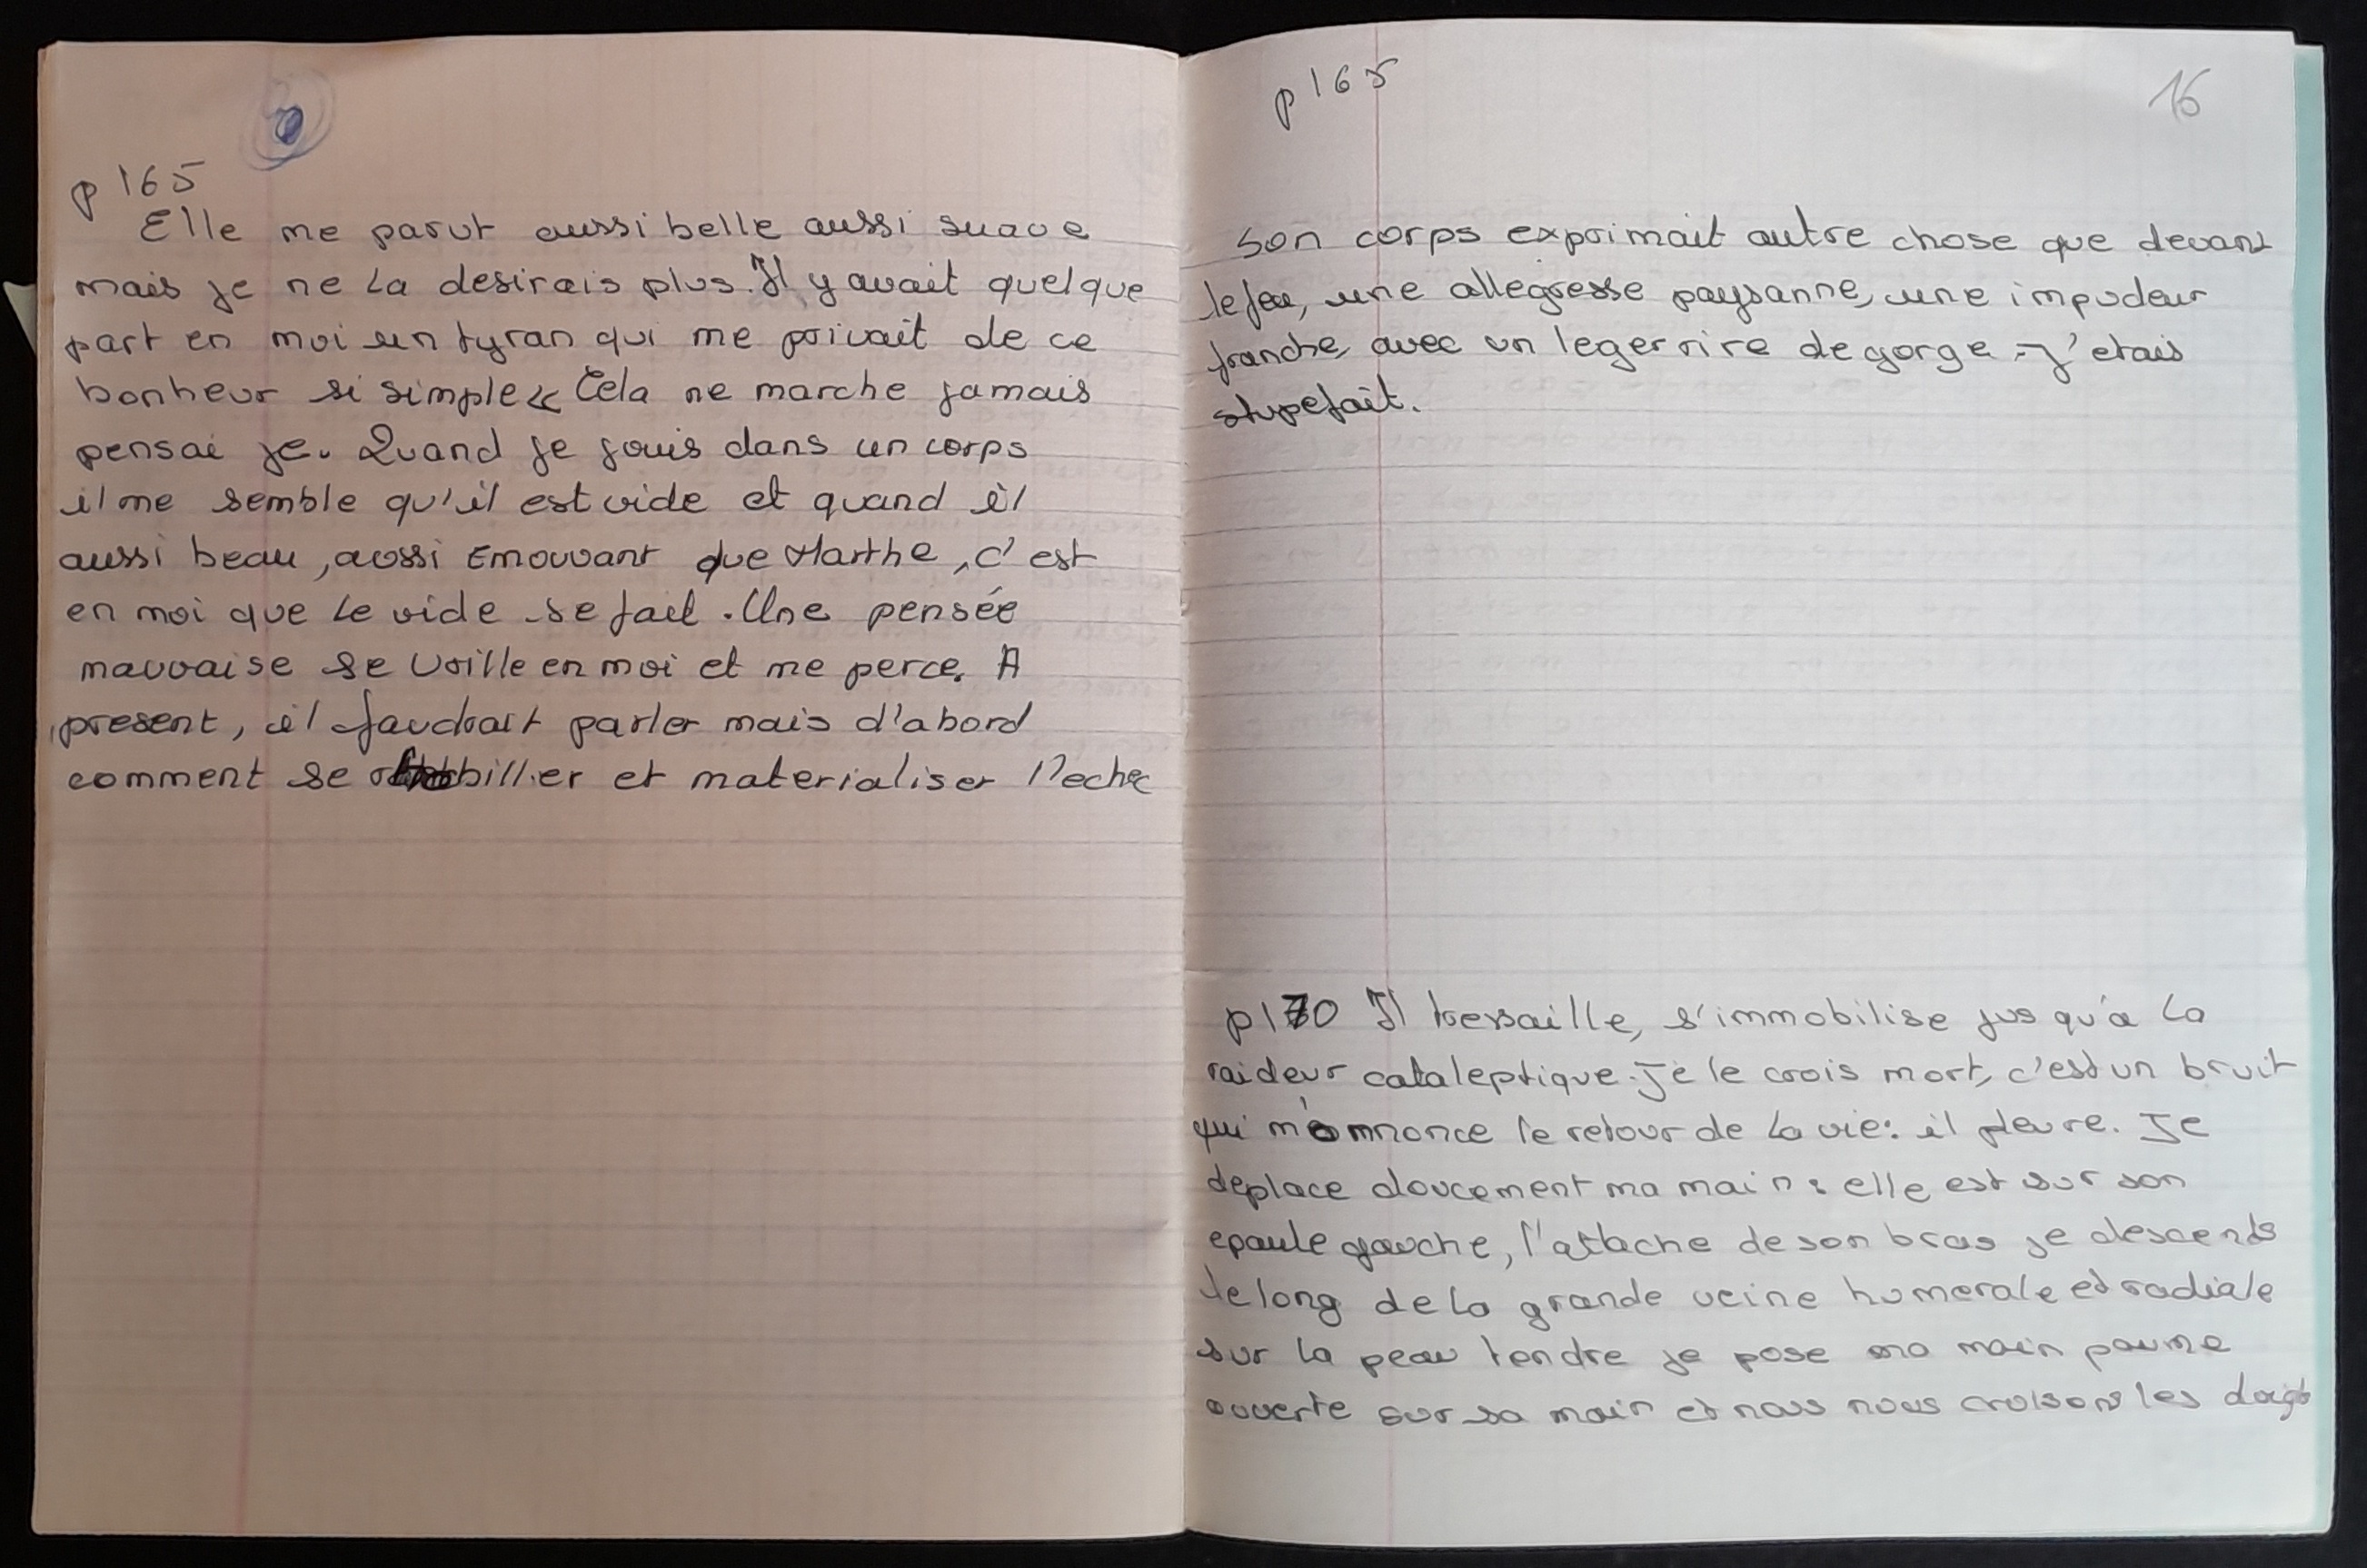 p 165
Elle me parut aussi belle aussi suave
mais je ne la desirais plus. Il y avait quelque
part en moi un tyran qui me privait de ce
bonheur si simple « Cela ne marche jamais
pensai je. Quand je jouis dans un corps
il me semble qu'il est vide et quand il
aussi beau, aussi Emouvant que Marthe, c'est
en moi que le vide se fait. Une pensée
mauvaise se vrille en moi et me perce. A
present, il faudrait parler mais d'abord
comment se et materialiser l'echec
p 165
16
Son corps exprimait autre chose que devant
le feu, une allegresse paysanne, une impudeur
franche, avec un leger rire de gorge - J'etais
stupefait.
p170 Il tressaille, s'immobilise jusqu'a la
raideur cataleptique. Je le crois mort, c'est un bruit
qui m'annonce le retour de la vie : il pleure. Je
deplace doucement ma main : elle est sur son
epaule gauche, l'attache de son bras je descends
le long de la grande veine humerale et radiale
sur la peau tendre je pose ma main paume
ouverte sur sa main et nous nous croisons les doigts